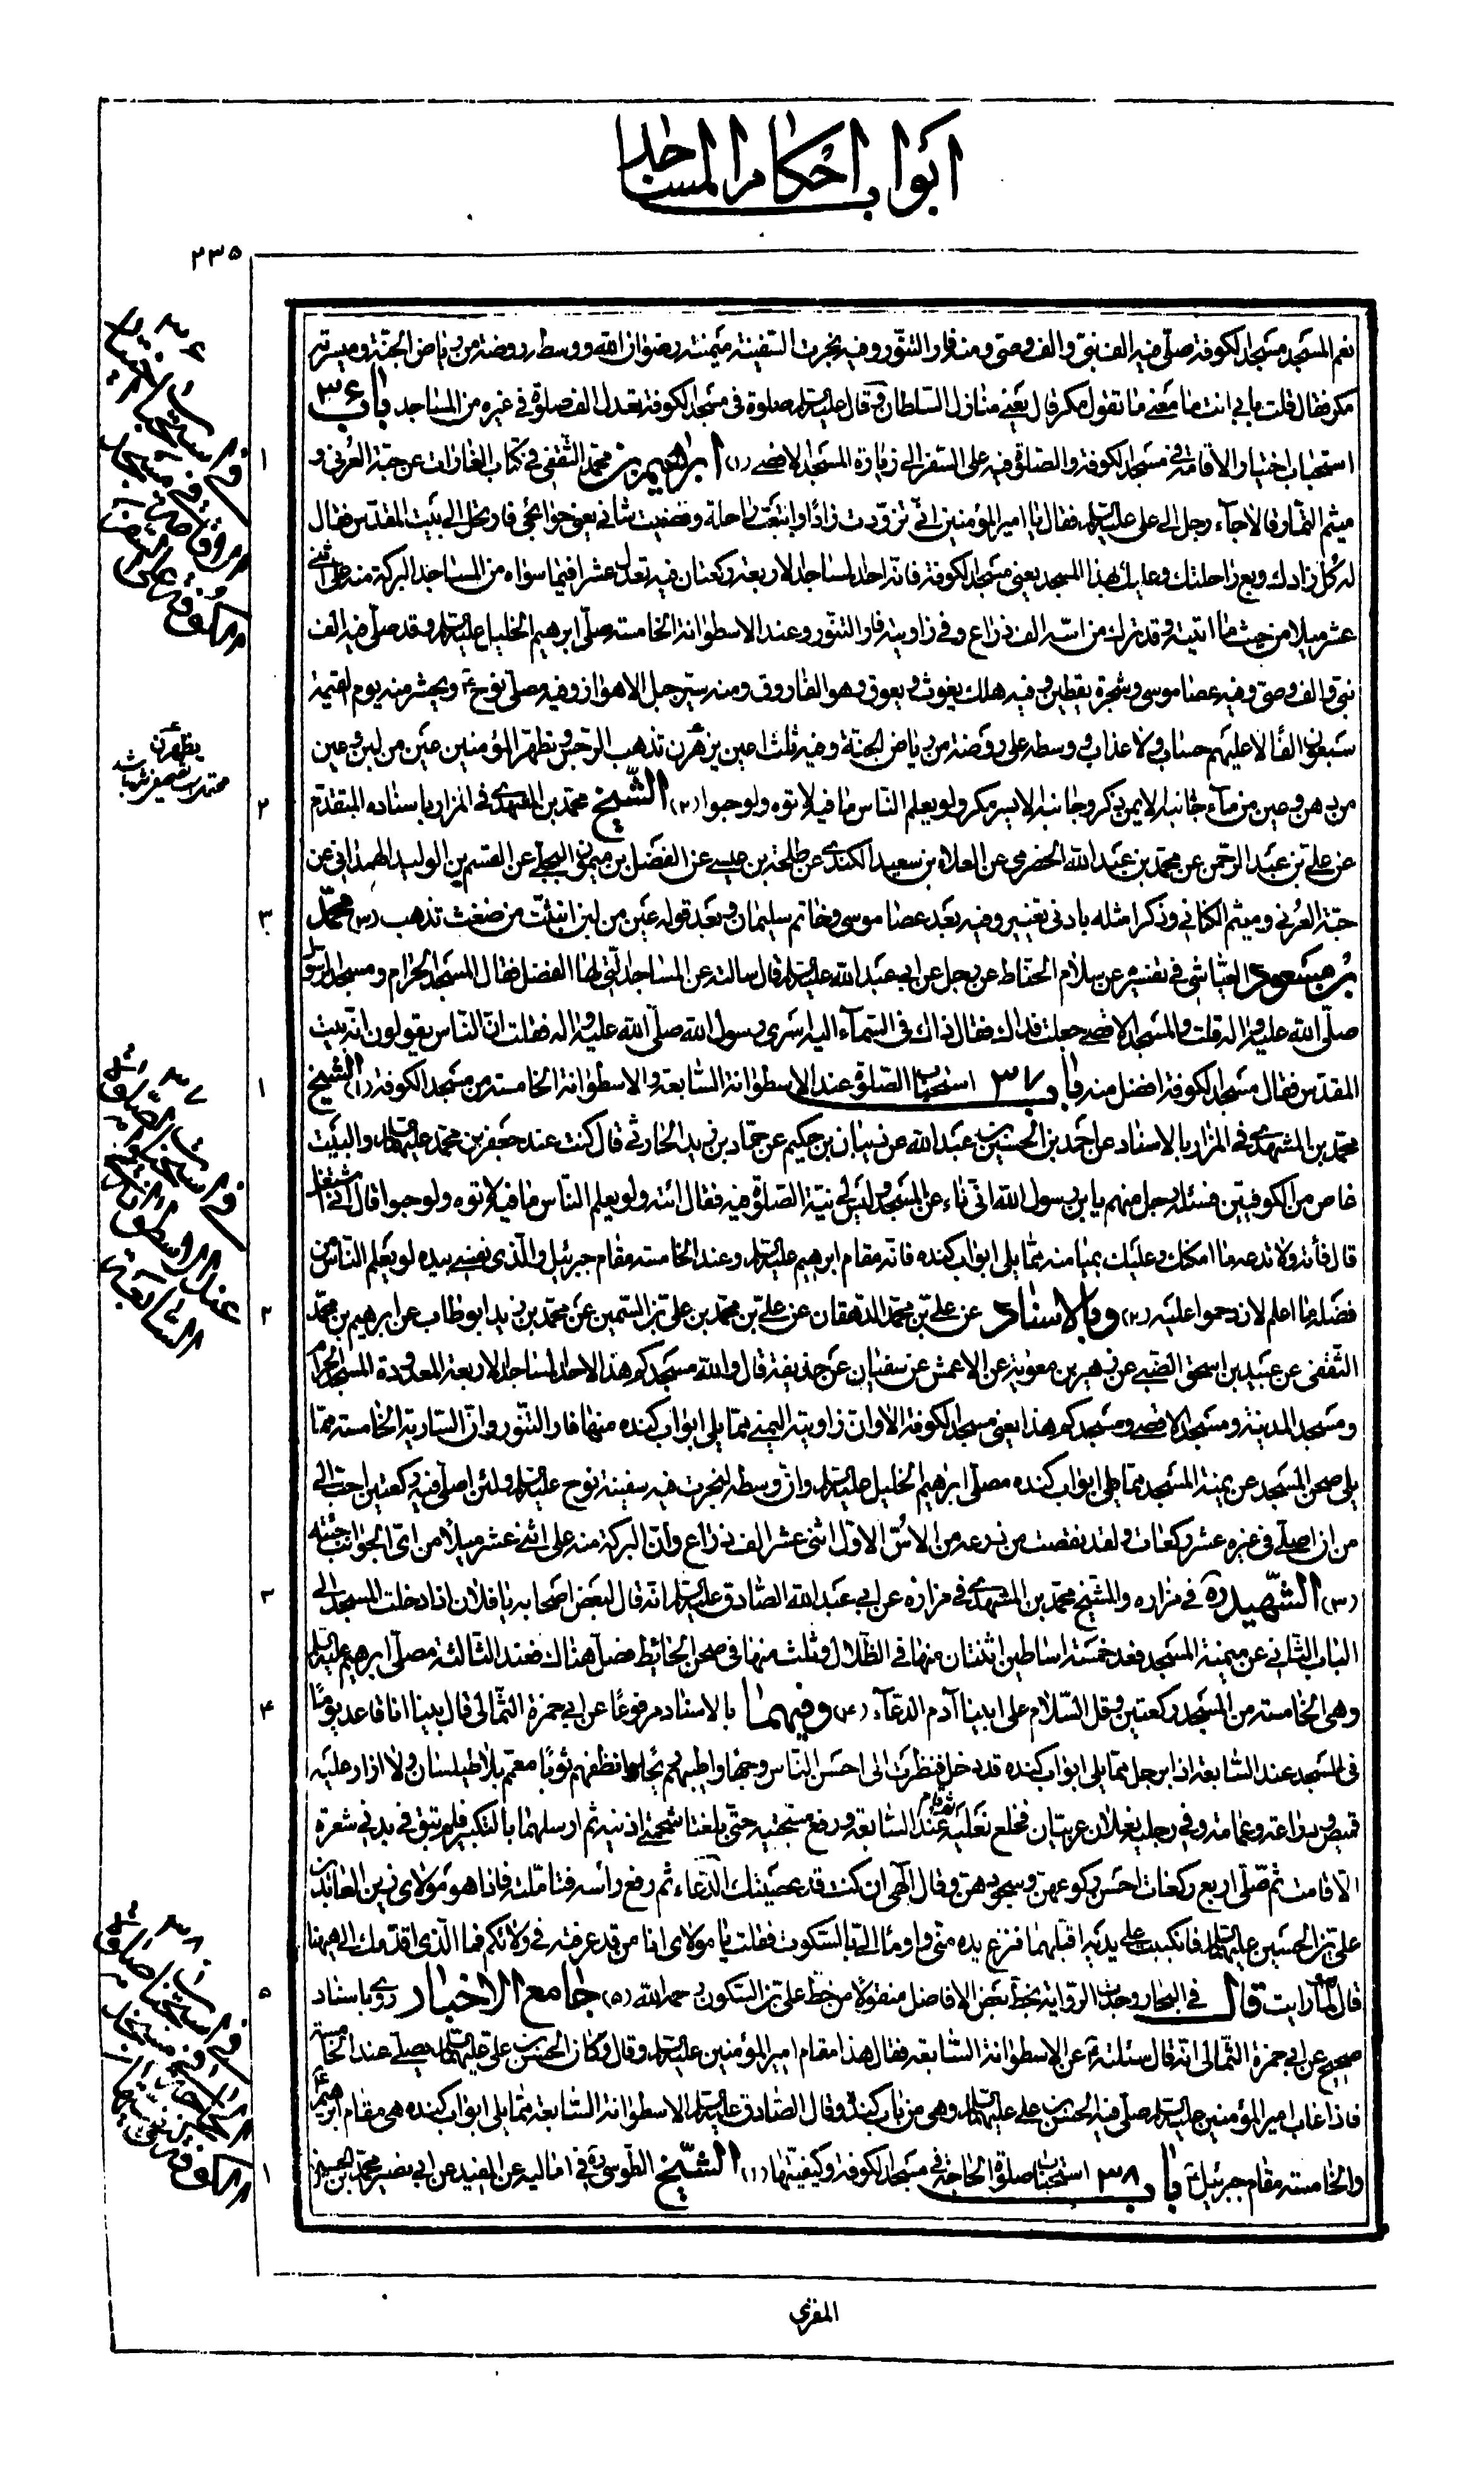 ابواب احكام المساجد
٢٣٥
نعم المسجد مسجد الكوفة صلى فيه الف نبى والف وصى ومنه فار التنور وفيه نجرت السفينة ميمنته رضوان الله ووسطه روضة من رياض الجنة وميسرته
مكر فقال قلت بابى انت ما معنى ما تقول مكر قال يعنى منازل السلطان وقال عليه السلام صلوة فى مسجد الكوفة تعدل الف صلوة فى غيره من المساجد باب ٣٦
استحباب اختيار الاقامة فى مسجد الكوفة والصلوة فيه على السفر الى زيارة المسجد الاقصى (١) ابراهيم بن محمد الثقفى فى كتاب الغارات عن حبة العرنى و
ميثم التمار قالا جاء رجل الى على عليه السلام فقال يا امير المؤمنين انى تزودت زادا وابتعت راحلة وقضيت شانى يعنى حوائجى فارتحل الى بيت المقدس فقال
له كل زادك وبع راحلتك وعليك بهذا المسجد يعنى مسجد الكوفة فانه احد المساجد الاربعة ركعتان فيه تعدل عشرا فيما سواه من المساجد البركة منه على اثنى
عشر ميلا من حيث ما اتيته وقد ترك من اسه الف ذراع وفى زاويته فار التنور وعند الاسطوانة الخامسة صلى ابرهيم الخليل عليه السلام وقد صلى فيه الف
نبى والف وصى وفيه عصا موسى وشجرة يقطين وفيه هلك يغوث ويعوق وهو الفاروق ومنه سير جبل الاهواز وفيه مصلى نوح ع ويحشر منه يوم القيمة
سبعون الفا لا عليهم حساب ولا عذاب ووسطه على روضة من رياض الجنة وفيه ثلث اعين يزهرن تذهب الرجس وتطهر المؤمنين عين من لبن وعين
من دهن وعين من ماء جانبه الايمن ذكر وجانبه الايسر مكر ولو يعلم الناس ما فيه لاتوه ولو حبوا (٢) الشيخ محمد بن المشهدى فى المزار باسناده المتقدم
عن على بن عبد الرحمن عن محمد بن عبد الله الحضرمى عن العلاء بن سعيد الكندى عن طلحة بن عيسى عن الفضل بن ميمون البجلى عن القسم بن الوليد الهمدانى عن
حبة العرنى وميثم الكنانى وذكرا مثله بادنى تغيير وفيه بعد عصا موسى وخاتم سليمان وبعد قوله عين من لبن انبتت من ضغث تذهب (٣) محمد
بن مسعود العياشى فى تفسيره عن سلام الحناط عن رجل عن ابى عبد الله عليه السلام قال سالته عن المساجد التى لها الفضل فقال المسجد الحرام ومسجد الرسول
صلى الله عليه واله قلت والمسجد الاقصى جعلت فداك فقال ذاك فى السماء اليه اسرى رسول الله صلى الله عليه واله فقلت ان الناس يقولون انه بيت
المقدس فقال مسجد الكوفة افضل منه باب ٣٧ استحباب الصلوة عند الاسطوانة السابعة والاسطوانة الخامسة من مسجد الكوفة (١) الشيخ
محمد بن المشهدى فى المزار بالاسناد عن احمد بن الحسين بن عبد الله عن ذبيان بن حكيم عن حماد بن زيد الحارثى قال كنت عند جعفر بن محمد عليهما السلام والبيت
غاص من الكوفيين فسئله رجل منهم يا بن رسول الله انى ناء عن المسجد وليس لى نية الصلوة فيه فقال ائته ولو يعلم الناس ما فيه لاتوه ولو حبوا قال انى اشتغل
قال فأته ولا تدعه ما امكنك وعليك بميامنه مما يلى ابواب كنده فانه مقام ابرهيم عليه السلام وعند الخامسة مقام جبرئيل والذى نفسى بيده لو يعلم الناس من
فضله ما اعلم لازدحموا عليه (٢) وبالاسناد عن على بن محمد الدهقان عن على بن محمد بن على بن السمين عن محمد بن زيد ابو طالب عن ابرهيم بن محمد
الثقفى عن عبيد بن اسحق الضبى عن زهير بن معوية عن الاعمش عن سفيان عن حذيفة قال والله مسجدكم هذا لاحد المساجد الاربعة المعدودة المسجد الحرام
ومسجد المدينة ومسجد الاقصى ومسجدكم هذا يعنى مسجد الكوفة الا وان زاويته اليمنى مما يلى ابواب كنده منها فار التنور وان السارية الخامسة مما
يلى صحن المسجد عن يمنة المسجد مما يلى ابواب كنده مصلى ابرهيم الخليل عليه السلام وان وسطه لنجرت فيه سفينة نوح عليه السلام ولئن اصلى فيه ركعتين احب الى
من ان اصلى فى غيره عشر ركعات ولقد نقصت من ذرعه من الاس الاول اثنى عشر الف ذراع وان البركة منه على اثنى عشر ميلا من اى الجوانب جئته
(٣) الشهيد ره فى مزاره والشيخ محمد بن المشهدى فى مزاره عن ابى عبد الله الصادق عليه السلام انه قال لبعض اصحابه يا فلان اذا دخلت المسجد الى
الباب الثانى عن ميمنة المسجد فعد خمسة اساطين اثنتان منها فى الظلال وثلث منها فى صحن الحائط فصل هناك فعند الثالثة مصلى ابرهيم عليه السلام
وهى الخامسة من المسجد ركعتين وقل السلام على ابينا آدم الدعاء (٤) وفيهما بالاسناد مرفوعا عن ابى حمزة الثمالى قال بينا انا قاعد يوما
فى المسجد عند السابعة اذا برجل مما يلى ابواب كنده قد دخل فنظرت الى احسن الناس وجها واطيبهم ريحا وانظفهم ثوبا معمم بلا طيلسان ولا ازار عليه
قميص ودراعة وعمامة وفى رجليه نعلان عربيان فخلع نعليه ثم قام عند السابعة ورفع مسبحتيه حتى بلغتا شحمتى اذنيه ثم ارسلهما بالتكبير فلم تبق فى بدنى شعرة
الا قامت ثم صلى اربع ركعات احسن ركوعهن وسجودهن وقال الهى ان كنت قد عصيتك الدعاء ثم رفع رأسه فتاملته فاذا هو مولاى زين العابدين
على بن الحسين عليهما السلام فانكببت على يديه اقبلهما فنزع يده منى واومأ الى بالسكوت فقلت يا مولاى انا من قد عرفته فى ولائكم فما الذى اقدمك الى هيهنا
قال لما رايت قال فى البحار وجدت الرواية بخط بعض الافاضل منقولا من خط على بن السكون رحمه الله (٥) جامع الاخبار روى باسناد
صحيح عن ابى حمزة الثمالى انه قال سئلته ع عن الاسطوانة السابعة فقال هذا مقام امير المؤمنين عليه السلام وقال وكان الحسن بن على عليهما السلام يصلى عند الخامسة
فاذا غاب امير المؤمنين عليه السلام صلى فيه الحسن بن على عليهما السلام وهى من باب كنده وقال الصادق عليه السلام الاسطوانة السابعة مما يلى ابواب كنده هى مقام ابرهيم ع
والخامسة مقام جبرئيل ع باب ٣٨ استحباب صلوة الحاجة فى مسجد الكوفة وكيفيتها (١) الشيخ الطوسى ره فى اماليه عن المفيد عن ابى نصير محمد بن الحسين
المقرى